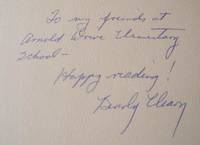 To my friends at
Arnold Drive Elementary
School—
Happy reading!
Beverly Cleary